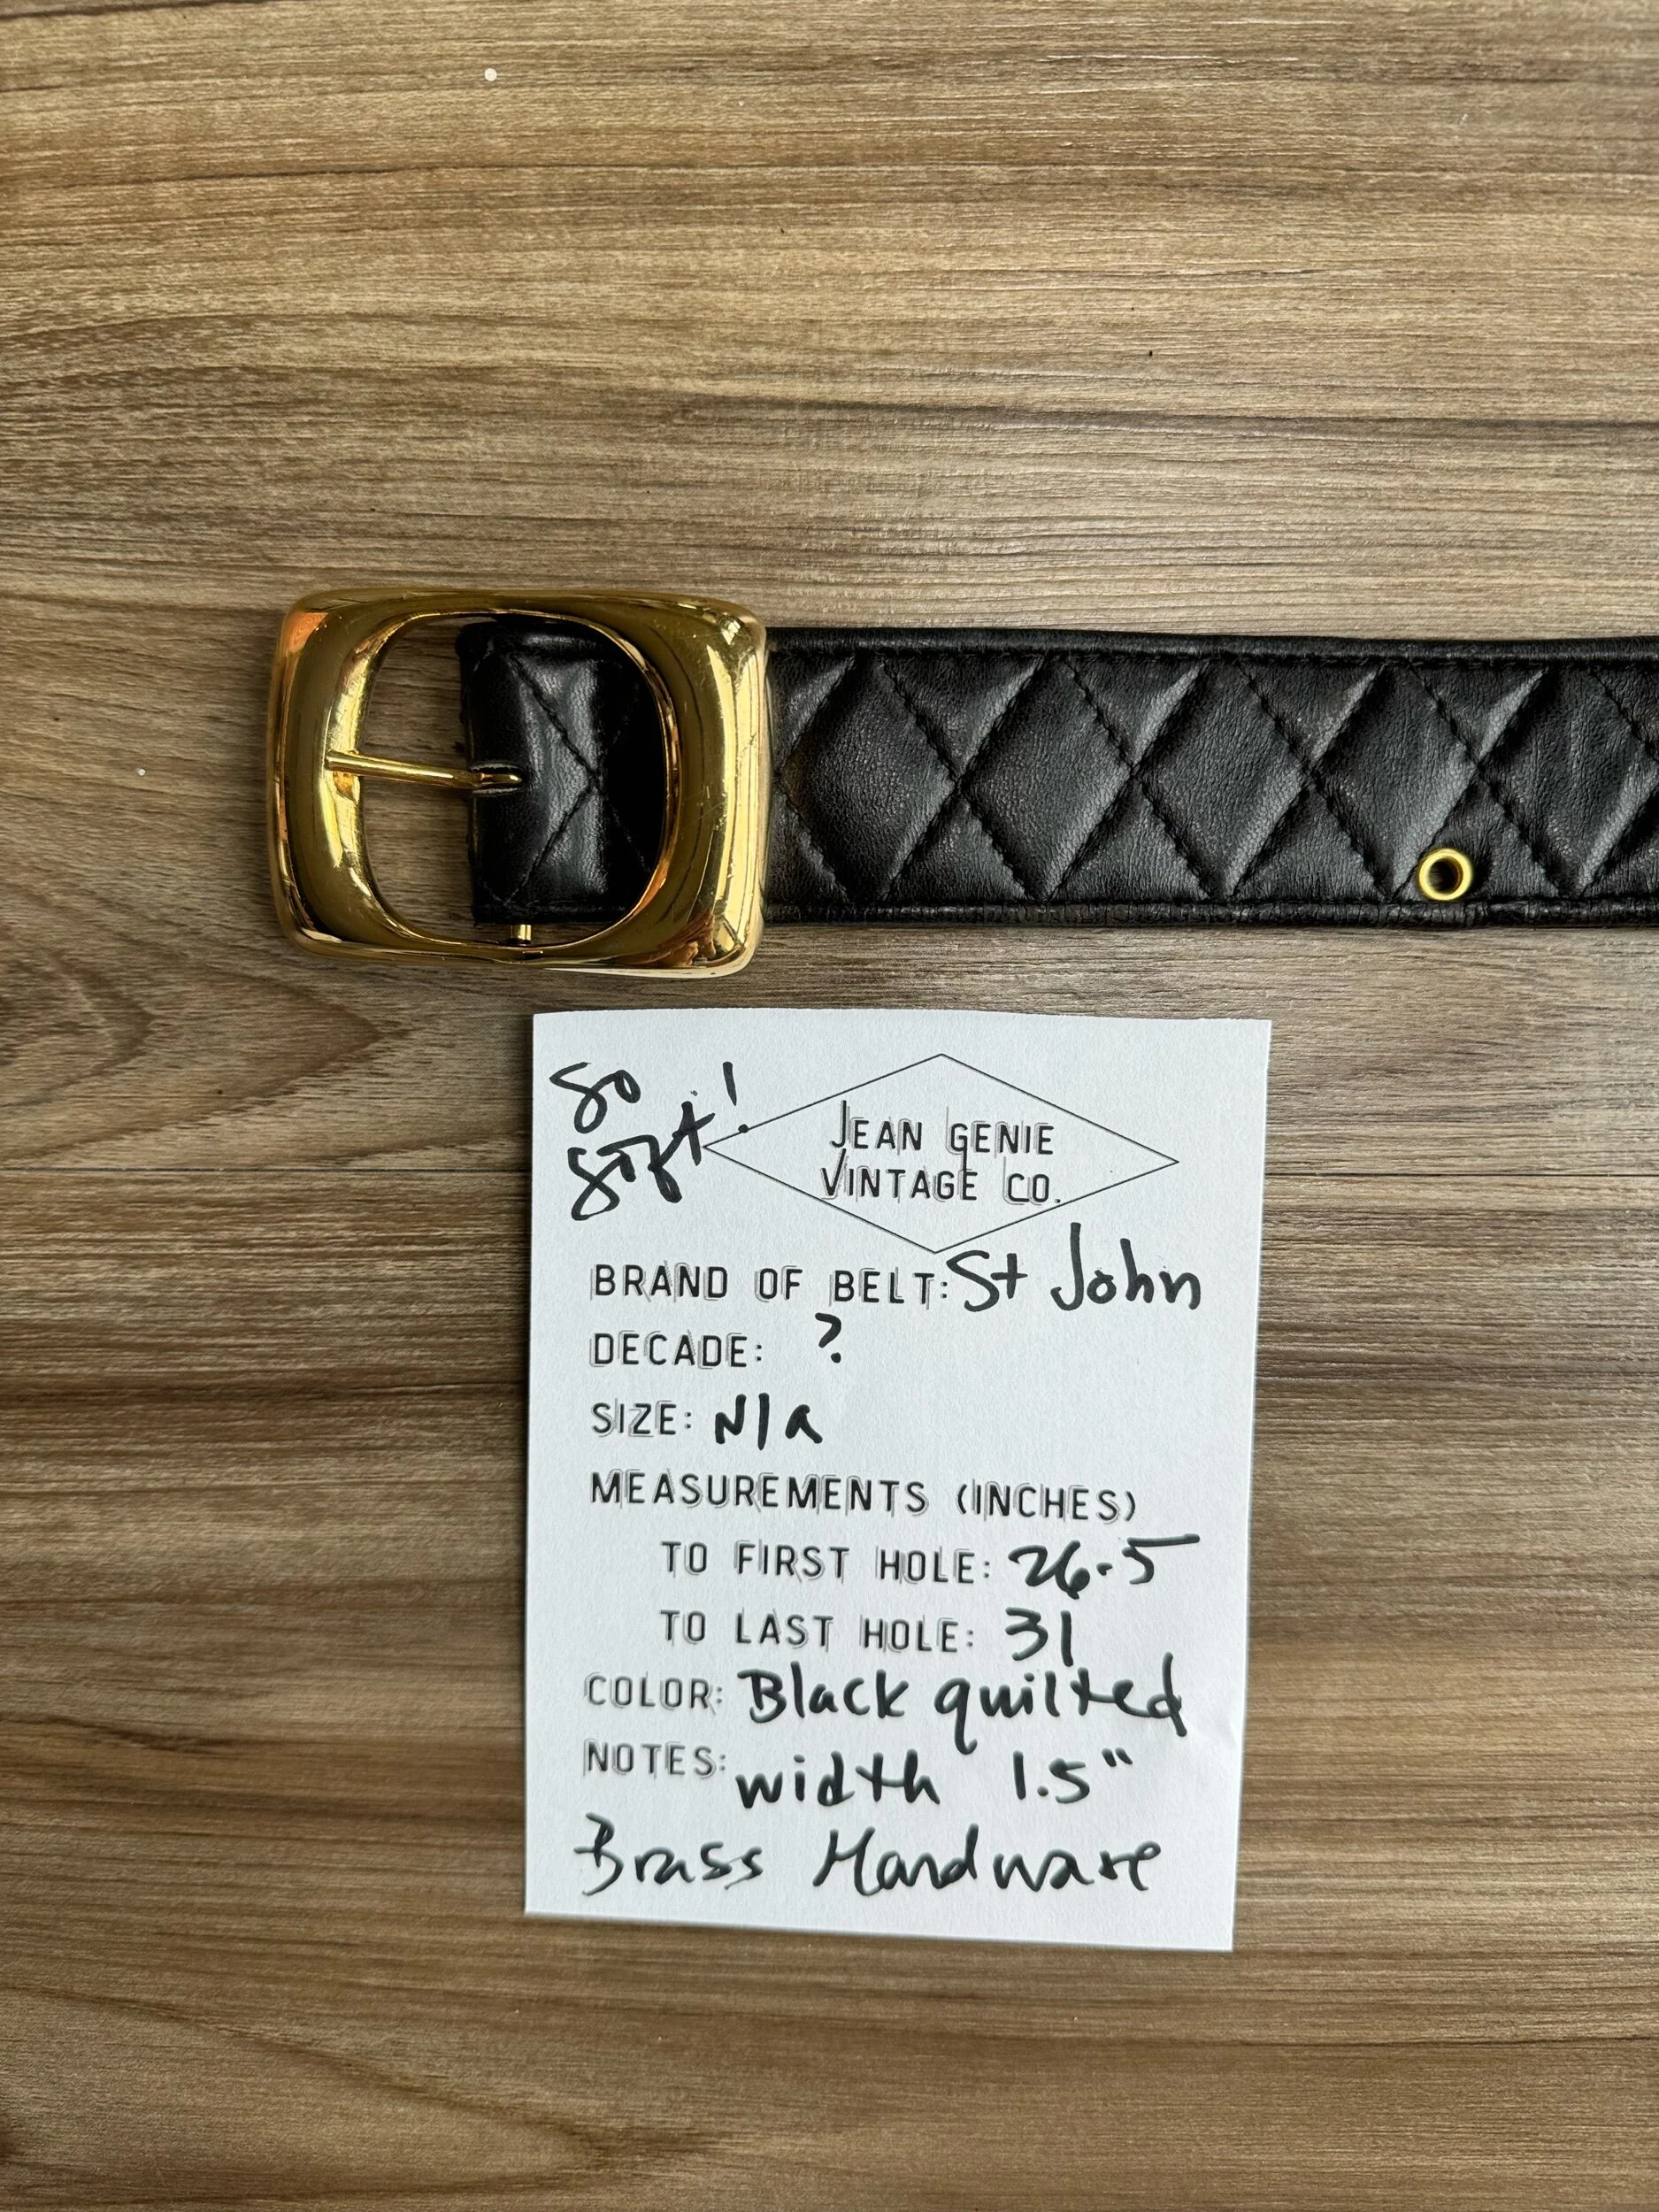 So
soft!
JEAN GENIE
VINTAGE CO.
BRAND OF BELT: St John
DECADE: ?
SIZE: N/a
MEASUREMENTS (INCHES)
TO FIRST HOLE: 26.5
TO LAST HOLE: 31
COLOR: Black quilted
NOTES: width 1.5"
Brass Hardware